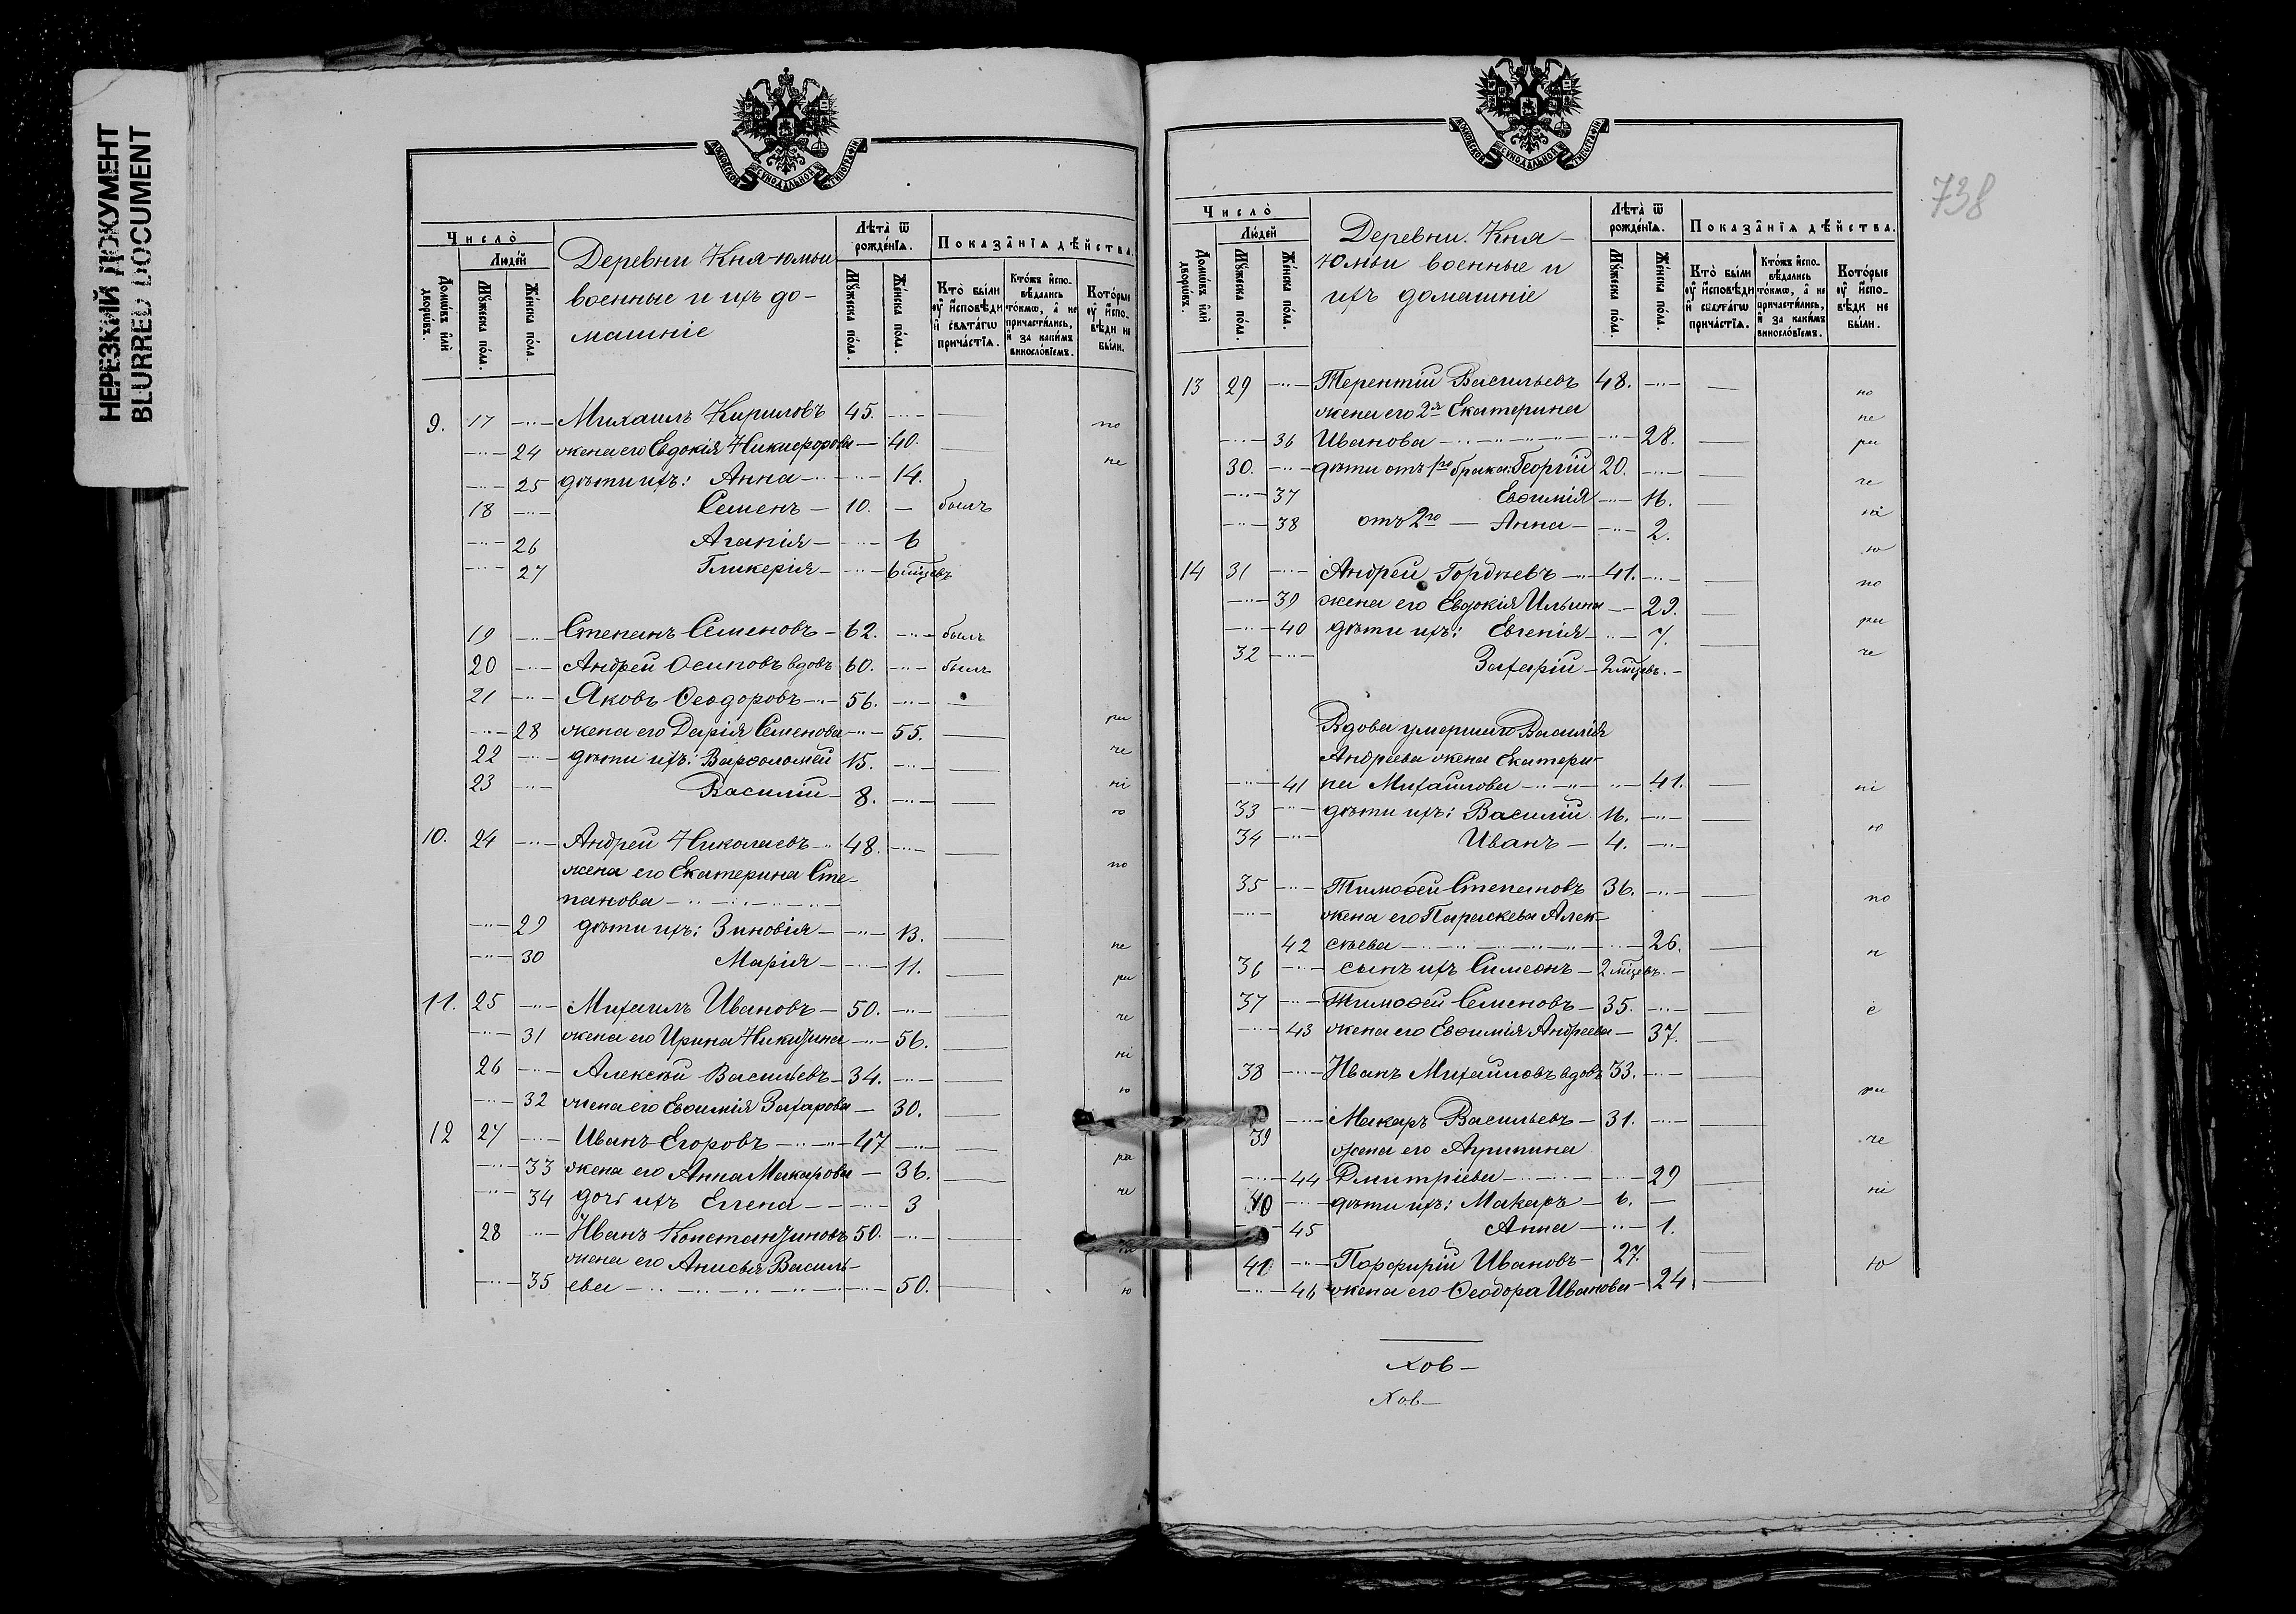 НЕРЕЗКИЙ ДОКУМЕНТ
BLURRED DOCUMENT
МОСКОВСКОЙ СѴНОДАЛЬНОЙ ТИПОГРАФІИ
Число̀
Людей
Домѡвъ и҆лѝ дворѡвъ.
Мꙋжеска по́ла.
Же́нска по́ла.
Деревни Кня-юмьи
военные и ихъ до-
машніе
Лѣта̀ ѿ рожде́нїѧ.
Мꙋжеска по́ла.
Же́нска по́ла.
Показа̂нїѧ дѣ́йства.
Кто̀ бы́ли ᲂу҆ и҆сповѣди и҆ свѧта́гѡ прича́стїѧ.
Кто́жъ и҆сповѣ́дались то́кмѡ, а҆ не причасти́лись, и҆ за каки́мъ винословїемъ.
Кото́рые ᲂу҆ и҆сповѣди не бы́ли.
9. 17 Михаилъ Кириловъ 45. по
24 жена его Евдокія Никифорова 40. не
25 дѣти ихъ: Анна 14.
18 Семенъ 10. былъ
26 Агапія 6
27 Гликерія 6 мѣцевъ
19 Степанъ Семеновъ 62. былъ
20 Андрей Осиповъ вдовъ 60. былъ
21 Яковъ Ѳеодоровъ 56.
28 жена его Дарія Семенова 55. ра
22 дѣти ихъ: Варѳоломей 15. че
23 Василій 8. ні
ю
10. 24 Андрей Николаевъ 48. по
жена его Екатерина Сте-
панова
29 дѣти ихъ: Зиновія 13. не
30 Марія 11. ра
11. 25 Михаилъ Ивановъ 50. че
31 жена его Ирина Никитина 56.
26 Алексѣй Васильевъ 34. ні
32 жена его Евѳимія Захарова 30. ю
12 27 Иванъ Егоровъ 47
33 жена его Анна Макарова 36. ра
34 дочь ихъ Елена 3 че
28 Иванъ Константиновъ 50.
жена его Анисья Василь-
35 ева 50. ю
738
Число̀
Людей
Домѡвъ и҆лѝ дворѡвъ.
Мꙋжеска по́ла.
Же́нска по́ла.
Деревни Кня-
юмьи военные и
ихъ домашніе
Лѣта̀ ѿ рожде́нїѧ.
Мꙋжеска по́ла.
Же́нска по́ла.
Показа̂нїѧ дѣ́йства.
Кто̀ бы́ли ᲂу҆ и҆сповѣди и҆ свѧта́гѡ прича́стїѧ.
Кто́жъ и҆сповѣ́дались то́кмѡ, а҆ не причасти́лись, и҆ за каки́мъ винословїемъ.
Кото́рые ᲂу҆ и҆сповѣди не бы́ли.
13 29 Терентій Васильевъ 48. по
жена его 2я Екатерина не
36 Иванова 28. ра
30. дѣти отъ 1го брака: Георгій 20. че
37 Евѳимія 16. ні
38 отъ 2го Анна 2. ю
14 31 Андрей Гордѣевъ 41. по
39 жена его Евдокія Ильина 29. ра
40 дѣти ихъ: Евгенія 7. че
32 Захарій 2 мѣцевъ.
Вдова умершаго Василія
Андреева жена Екатери-
41 на Михайлова 41. ні
33 дѣти ихъ: Василій 16. ю
34 Иванъ 4.
35 Тимоѳей Степановъ 36. по
жена его Параскева Алек-
42 сѣева 26. н
36 сынъ ихъ Симеонъ 2 мѣцевъ.
37 Тимоѳей Семеновъ 35. е
43 жена его Евѳимія Андреева 37.
38 Иванъ Михайловъ вдовъ 33. ра
39 Макаръ Васильевъ 31. че
жена его Агрипина
44 Дмитріева 29 ні
40 дѣти ихъ: Макаръ 6.
45 Анна 1.
41 Порфирій Ивановъ 27. ю
46 жена его Ѳеодора Иванова 24
Хов-
Хов-